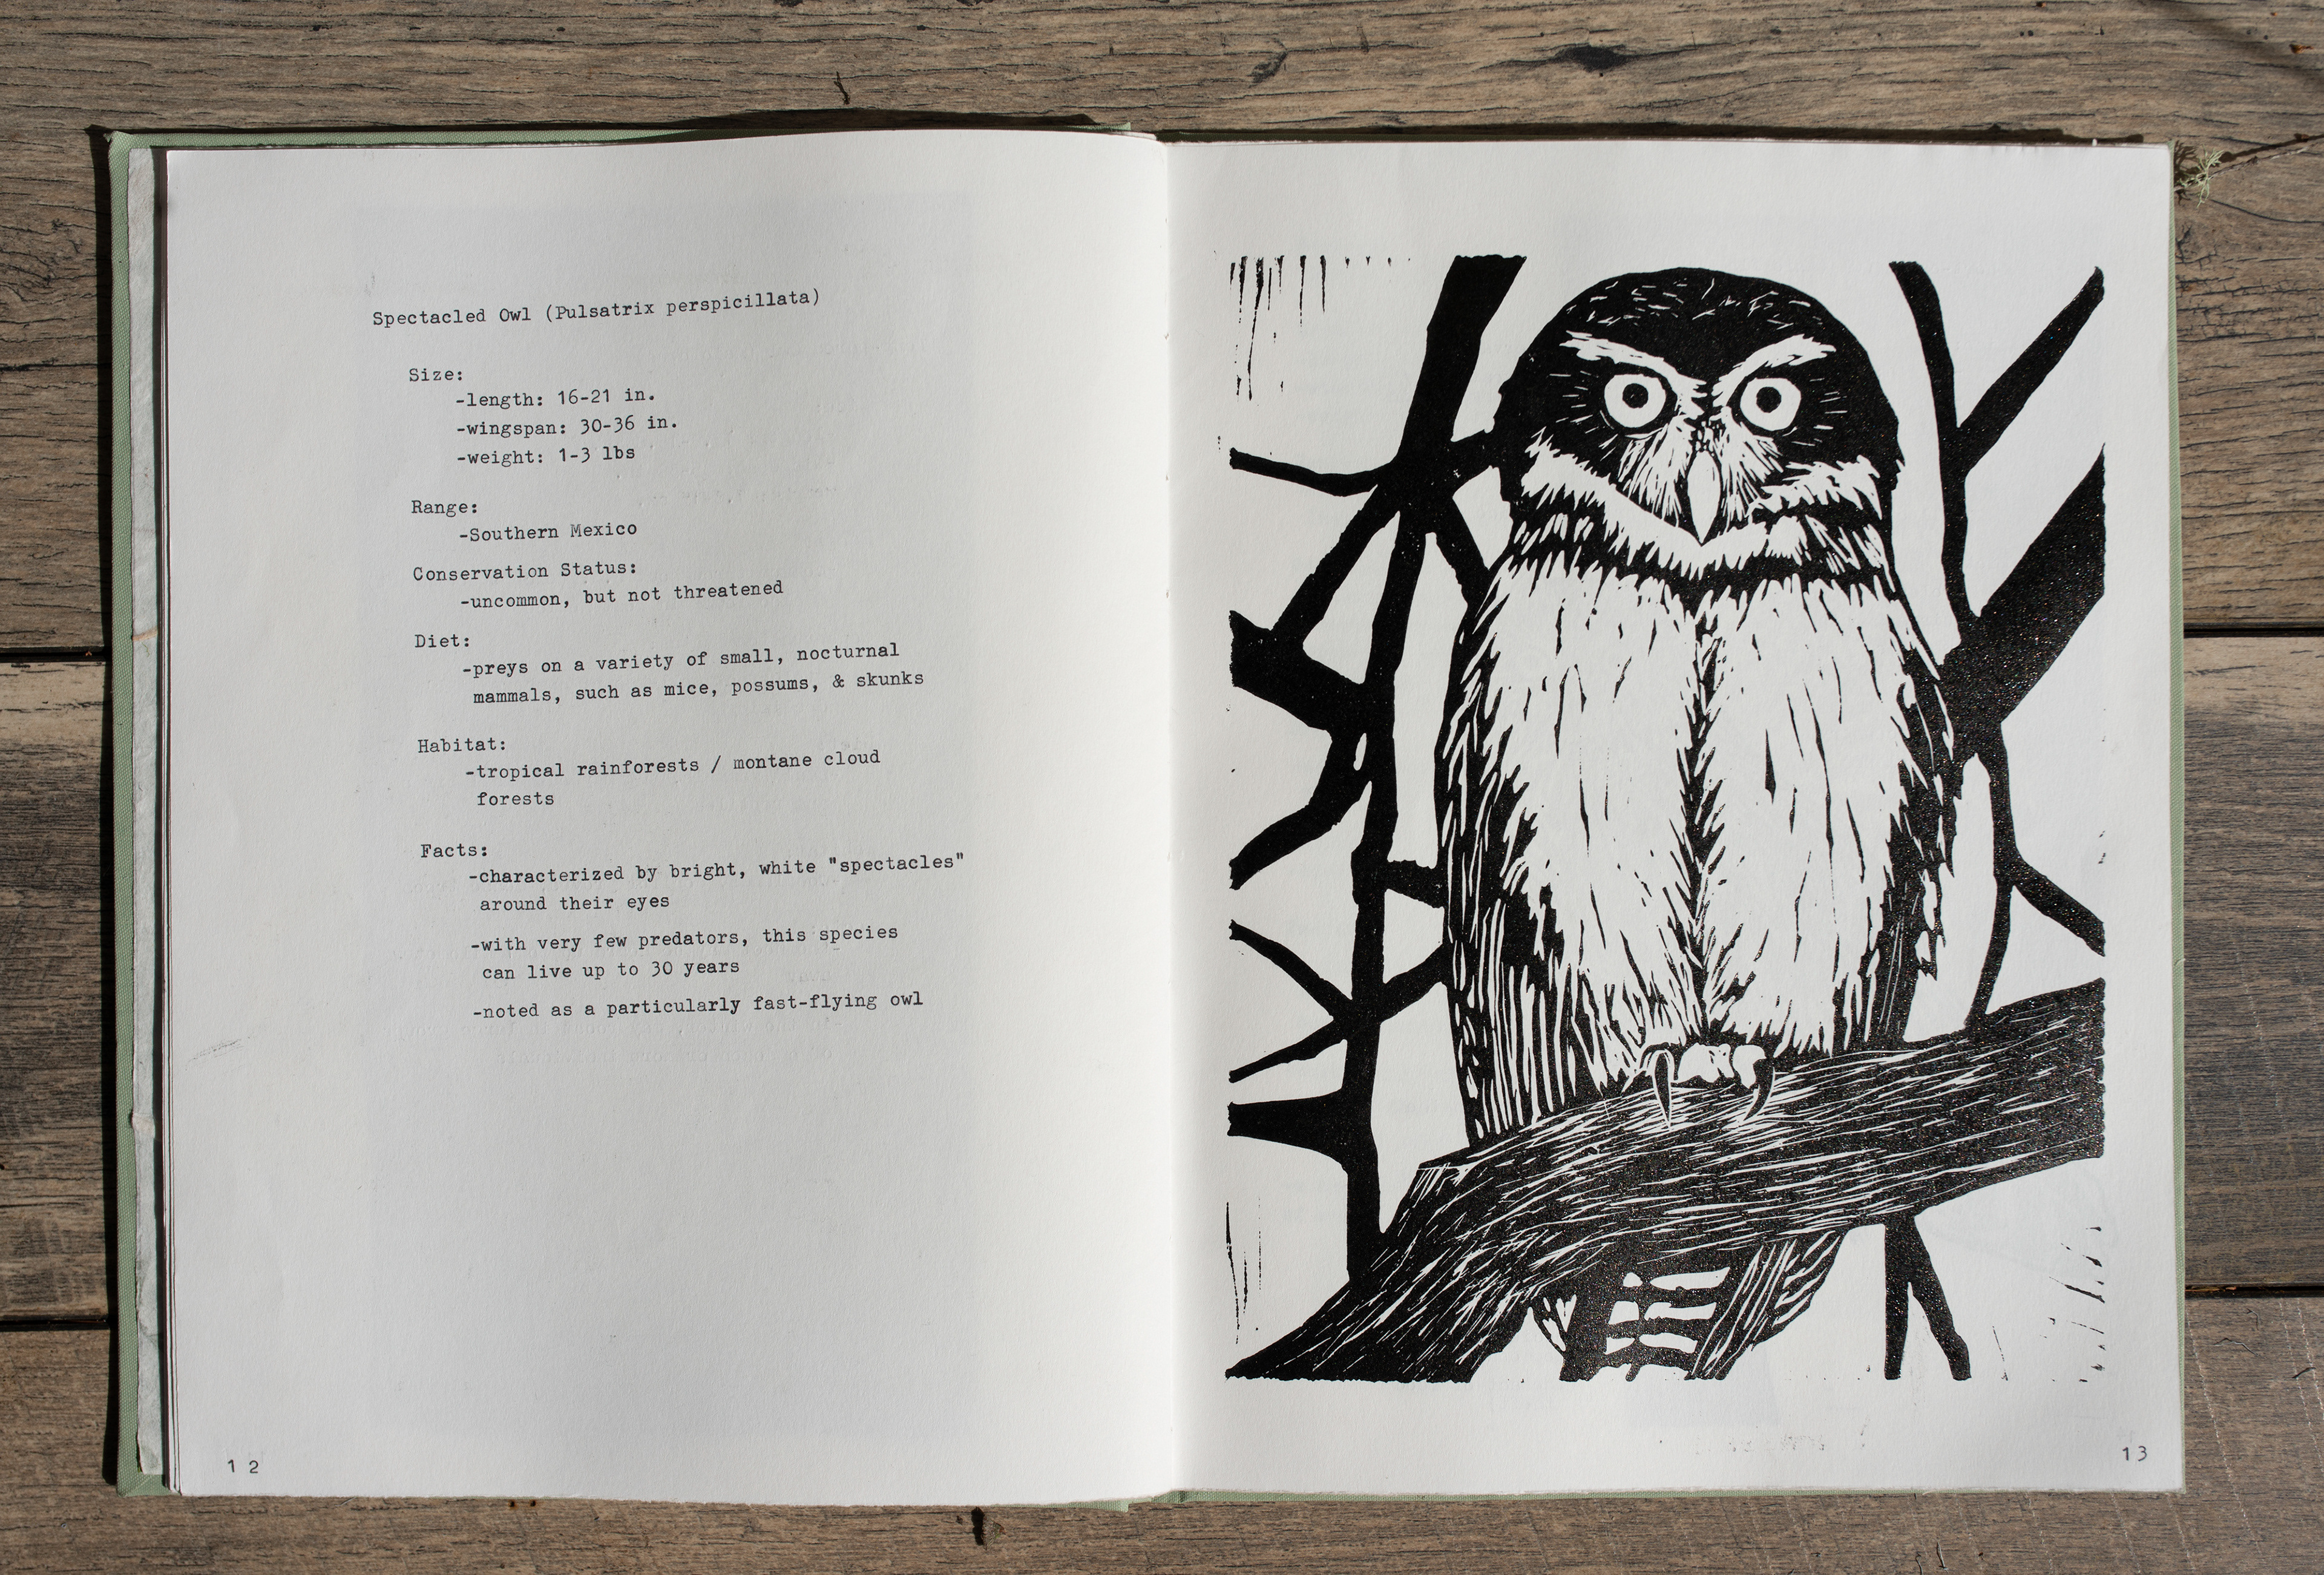 Spectacled Owl (Pulsatrix perspicillata)
Size:
-length: 16-21 in.
-wingspan: 30-36 in.
-weight: 1-3 lbs
Range:
-Southern Mexico
Conservation Status:
-uncommon, but not threatened
Diet:
-preys on a variety of small, nocturnal
mammals, such as mice, possums, & skunks
Habitat:
-tropical rainforests / montane cloud
forests
Facts:
-characterized by bright, white "spectacles"
around their eyes
-with very few predators, this species
can live up to 30 years
-noted as a particularly fast-flying owl
12
13